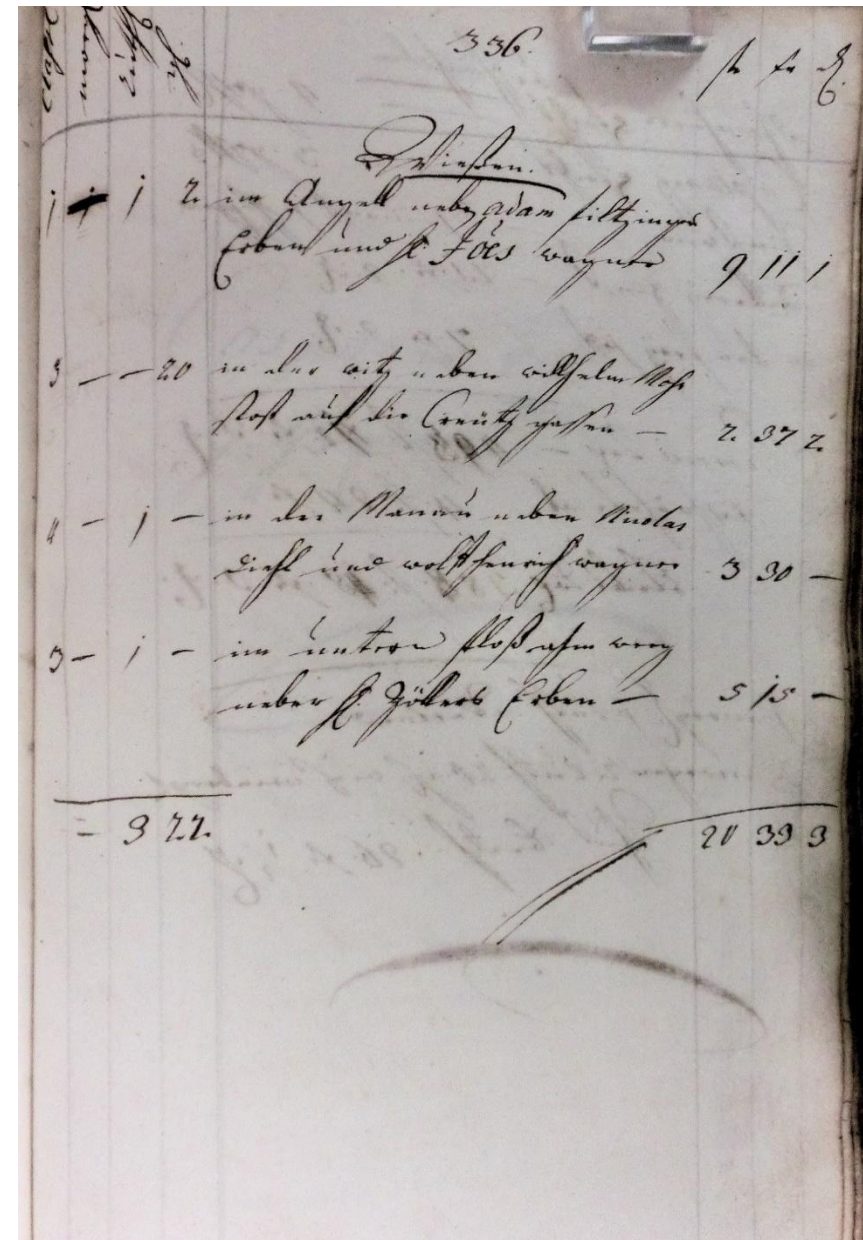 336.
fl xr ₰
Wießen.
1 1 1 2. im Angell neben adam filtzinger
Erben und H. Joes wagner 9 11 1
3 — — 20 in der witz neben willhelm Mohr
stost auf die Creütz gassen — 2. 37 2.
4 — 1 — in der neben Nicolas
Diehl und wolffhenrich wagner 3 30 —
3 — 1 — im untern floß ahm weeg
neben H. Zöllers Erben — 5 15 —
— 3 22. 20 33 3